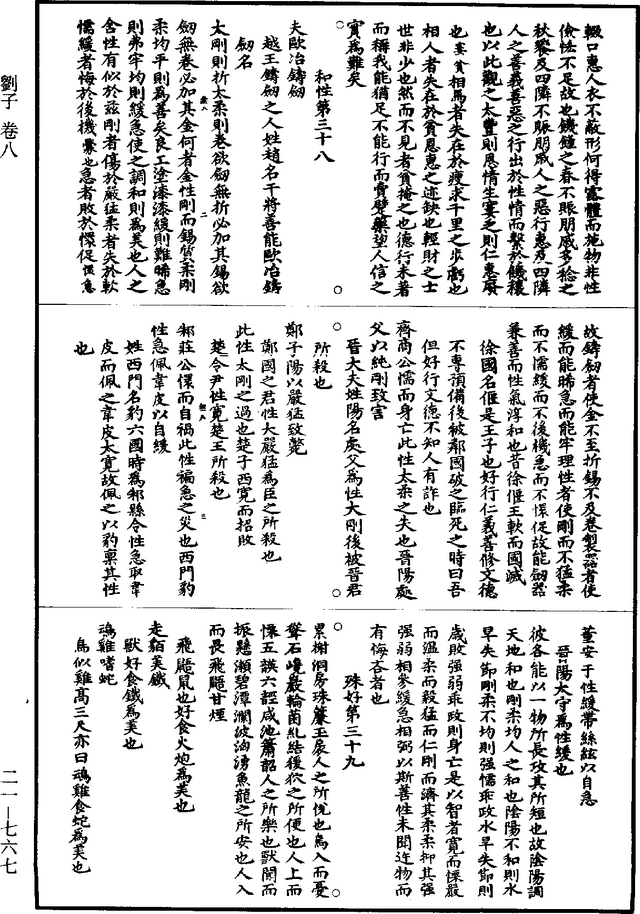 輟口惠人衣不蔽形何得露體而施物非性
儉恡不足故也饑饉之春不賑朋戚多稔之
秋饗及四隣不賑朋戚人之惡行惠及四隣
人之善義善惡之行出於性情而繫於饑穰
也以此觀之太豐則恩情生窶乏則仁惠廢
也窶貧相馬者失在於瘦求千里之步虧也
相人者失在於貧恩惠之迹缺也輕財之士
世非少也然而不見者貧掩之也德行未著
而稱我能猶足不能行而賣躄藥望人信之
實為難矣
和性第三十八
夫歐冶鑄劒
越王鑄劒之人姓趙名干將善能歐冶鑄
劒名
太剛則折太柔則卷欲劒無折必加其錫欲
劒無卷必加其金何者金性剛而錫質柔剛
柔均平則為善矣良工塗漆漆緩則難晞急
則弗牢均則緩急使之調和則為美也人之
含性有似於茲剛者傷於嚴猛柔者失於軟
懦緩者悔於後機釁也急者敗於懁促懁急
故鑄劒者使金不至折錫不及卷製器者使
緩而能晞急而能牢理性者使剛而不猛柔
而不懦緩而不後機急而不懁促故能劒器
兼善而性氣淳和也昔徐偃王軟而國滅
徐國名偃是王子也好行仁義善修文德
不專預備後被鄰國破之臨死之時曰吾
但好行文德不知人有詐也
齊商公懦而身亡此性太柔之失也晉陽處
父以純剛致害
晉大夫姓陽名處父為性大剛後被晉君
所殺也
鄭子陽以嚴猛致斃
鄭國之君性大嚴猛為臣之所殺也
此性太剛之過也楚子西寬而招敗
楚令尹性寬楚王所殺也
邾莊公懁而自禍此性褊急之災也西門豹
性急佩韋皮以自緩
姓西門名豹六國時為鄴縣令性急取韋
皮而佩之韋皮太寬故佩之以豹禀其性
也
董安于性緩帶絲絃以自急
晉陽太守為性緩也
彼各能以一物所長攻其所短也故陰陽調
天地和也剛柔均人之和也陰陽不和則水
旱失節剛柔不均則强懦乖政水旱失節則
歲敗强弱乖政則身亡是以智者寬而慄嚴
而溫柔而毅猛而仁剛而濟其柔柔抑其强
强弱相參緩急相弼以斯善性未聞迕物而
有悔吝者也
殊好第三十九
累榭洞房珠簾玉扆人之所悅也鳥入而憂
聳石巉巖輪菌糺結猨狖之所便也人上而
慄五韺六䪫咸池簫韶人之所樂也獸聞而
振懸瀨碧潭瀾波洶湧魚龍之所安也人入
而畏飛鼯甘煙
飛鼯鼠也好食火炮為美也
走貊美鐵
獸好食鐵為美也
鴆雞嗜蛇
鳥似雞高三尺亦曰鴆雞食蛇為美也
劉子 卷八
二一—七六七